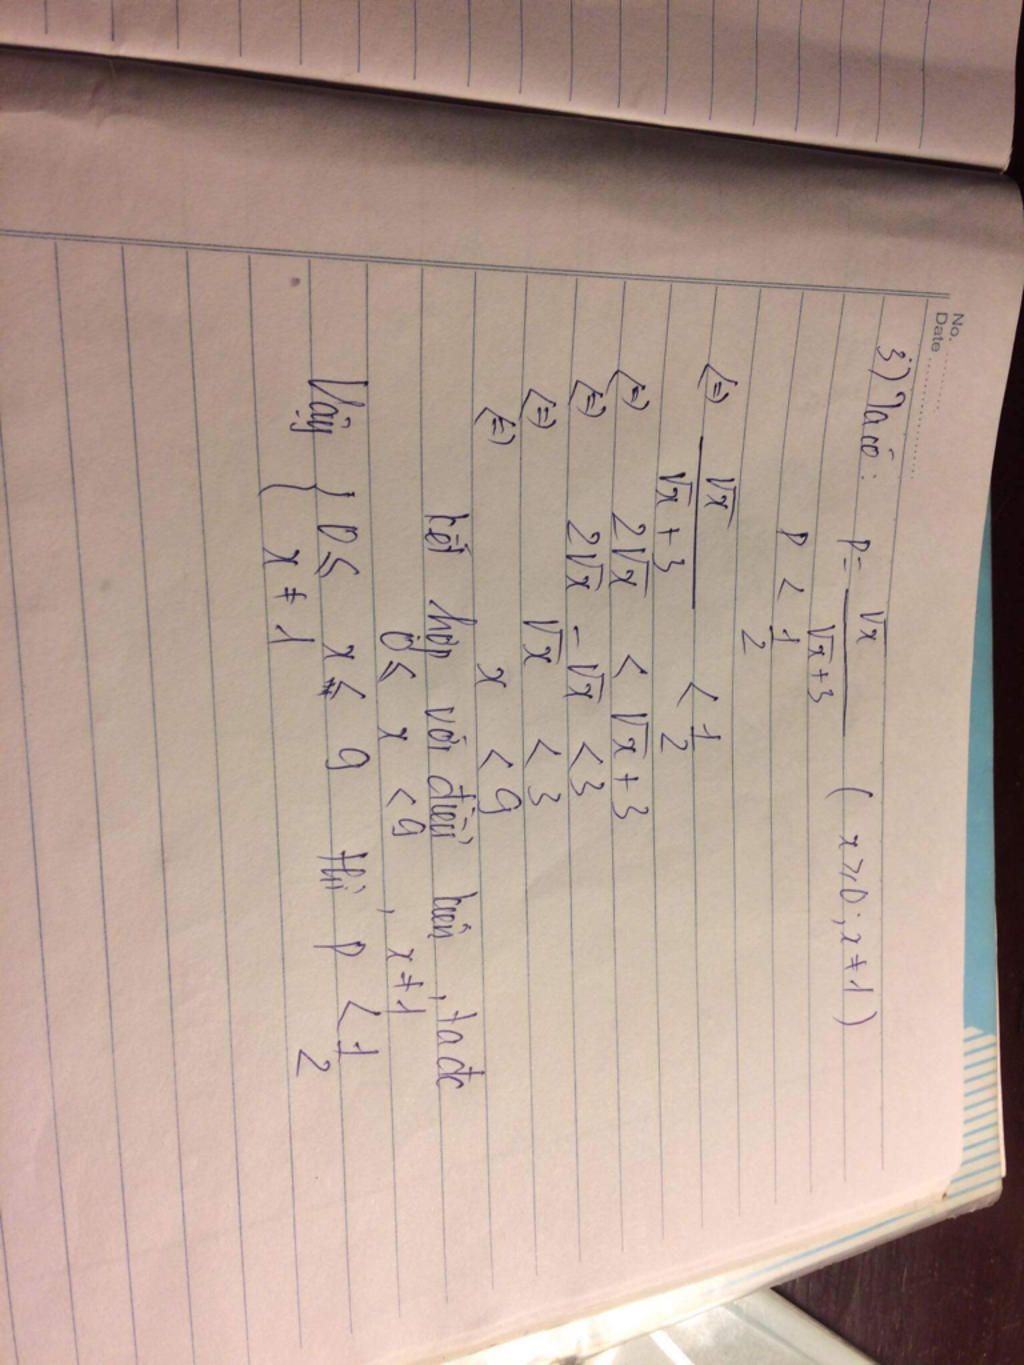 No.
Date
3) Ta có: P = √x / (√x + 3) (x ⩾ 0; x ≠ 1)
P < 1/2
<=> √x / (√x + 3) < 1/2
<=> 2√x < √x + 3
<=> 2√x - √x < 3
<=> √x < 3
<=> x < 9
kết hợp với điều kiện, ta đc
0 ≤ x < 9, x ≠ 1
Vậy { 0 ≤ x ≤ 9 thì P < 1/2
x ≠ 1